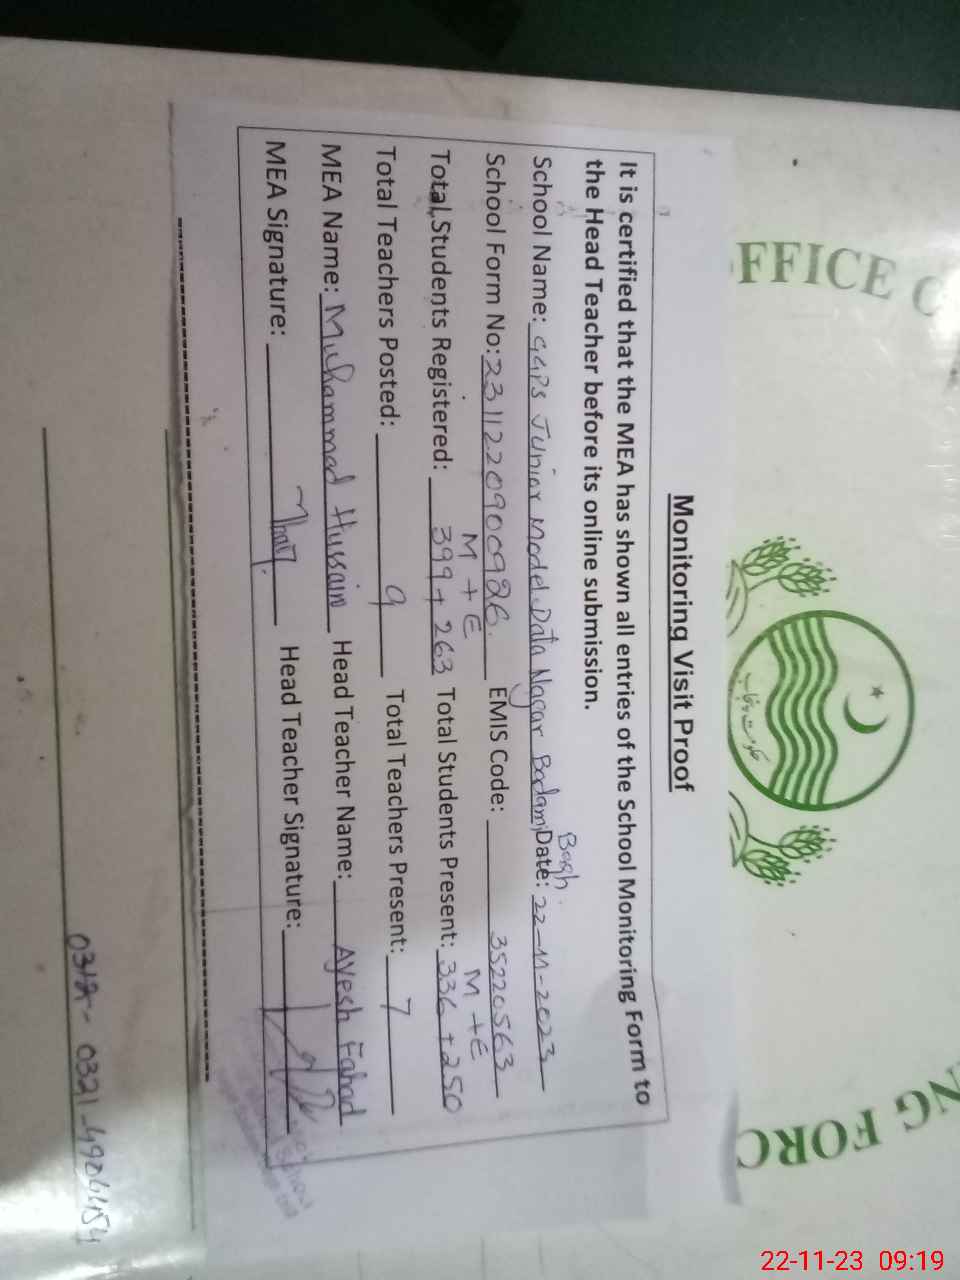 FFICE O
NG FORC
حکومت پنجاب
Monitoring Visit Proof
It is certified that the MEA has shown all entries of the School Monitoring Form to
the Head Teacher before its online submission.
School Name: GGPS Junior Model Data Nagar Badami Bagh. Date: 22-11-2023
School Form No: 2311220900926. EMIS Code: 35220563
M + E M + E
Total Students Registered: 399 + 263 Total Students Present: 336 + 250
Total Teachers Posted: 9 Total Teachers Present: 7
MEA Name: Muhammad Hussain Head Teacher Name: Ayesh Fahad
MEA Signature: Head Teacher Signature:
22-11-23 09:19